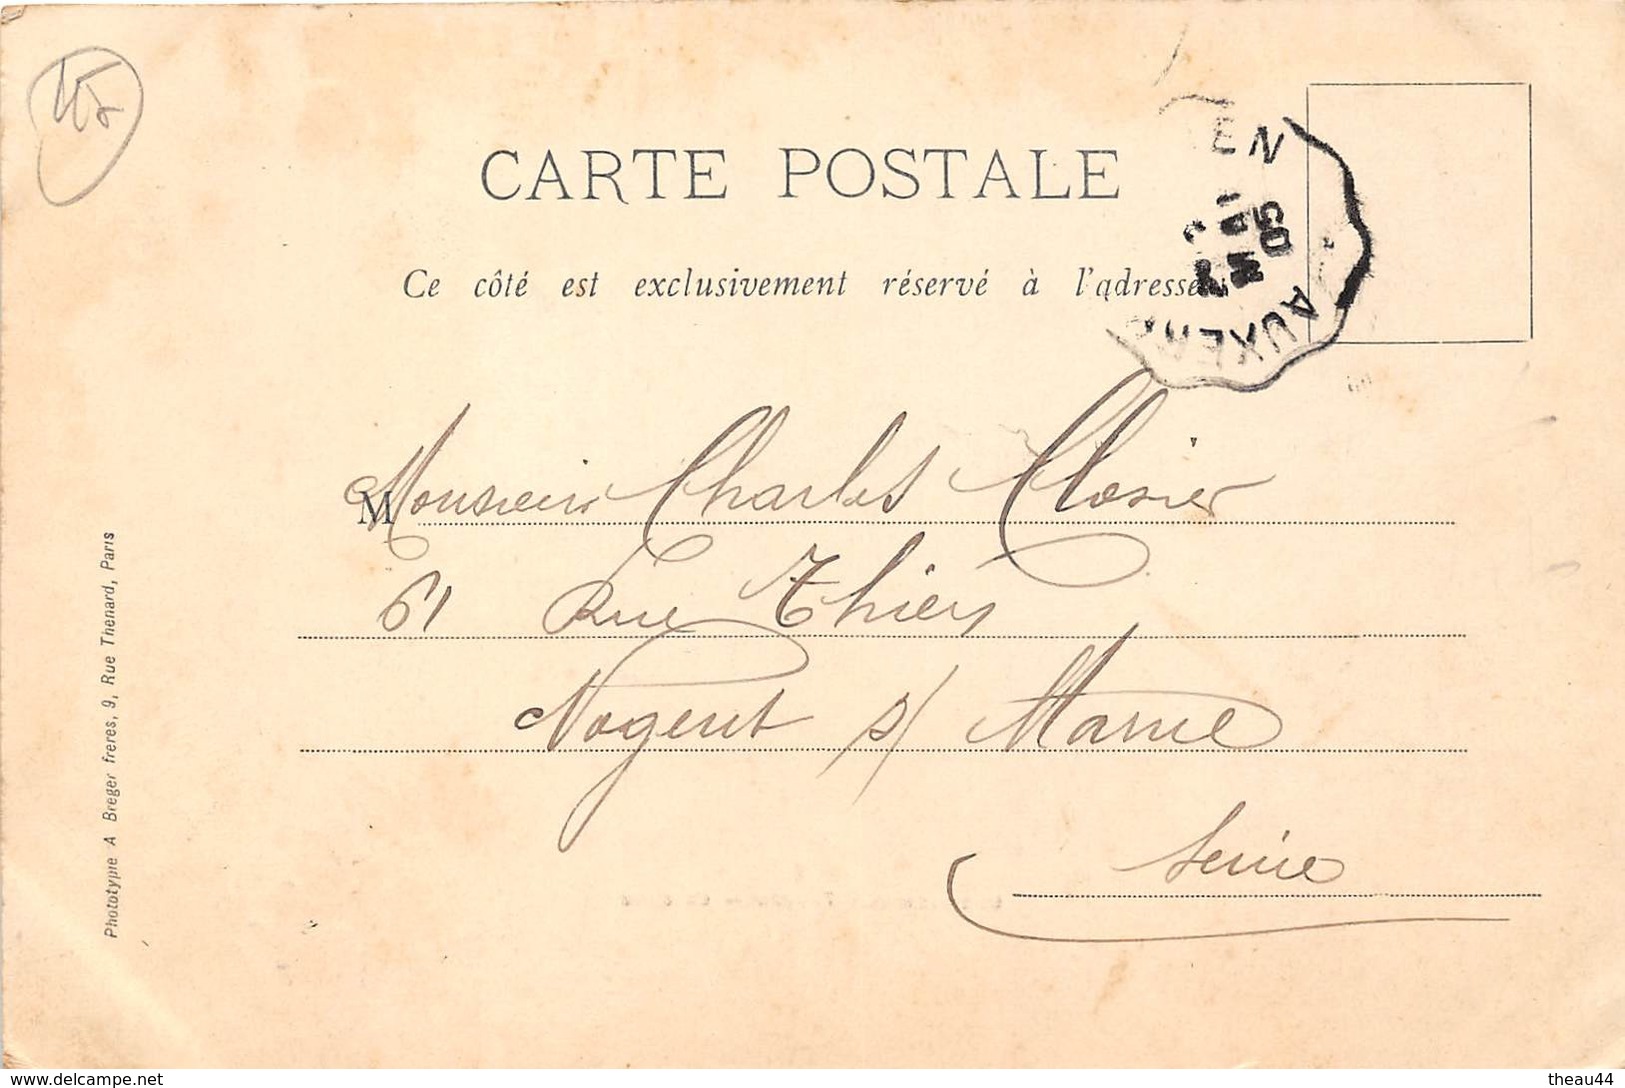 CARTE POSTALE
Ce côté est exclusivement réservé à l'adresse
EN
AUXER
M
Monsieur Charles Closier
61 Rue Thiers
Nogent s/ Marne
Seine
Phototypie A Breger frères, 9, Rue Thenard, Paris
www.delcampe.net
theau44